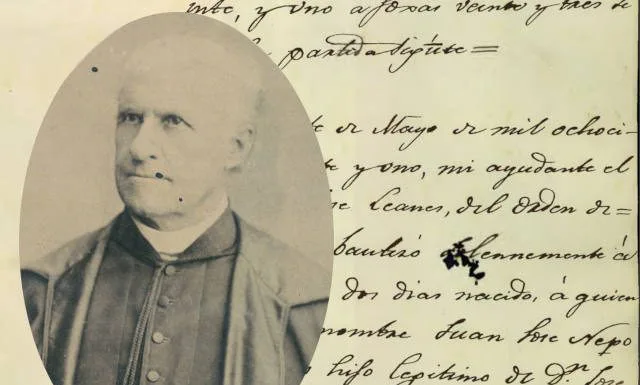 y uno a foxas veinte y tres de
partida sigte=
de Mayo de mil ochoci-
y uno, mi ayudante el
Leanes, del Orden de=
bautizó solennemente á
dos dias nacido, á quien
nombre Juan Jose Nepo
hijo legitimo de Dn. Jose